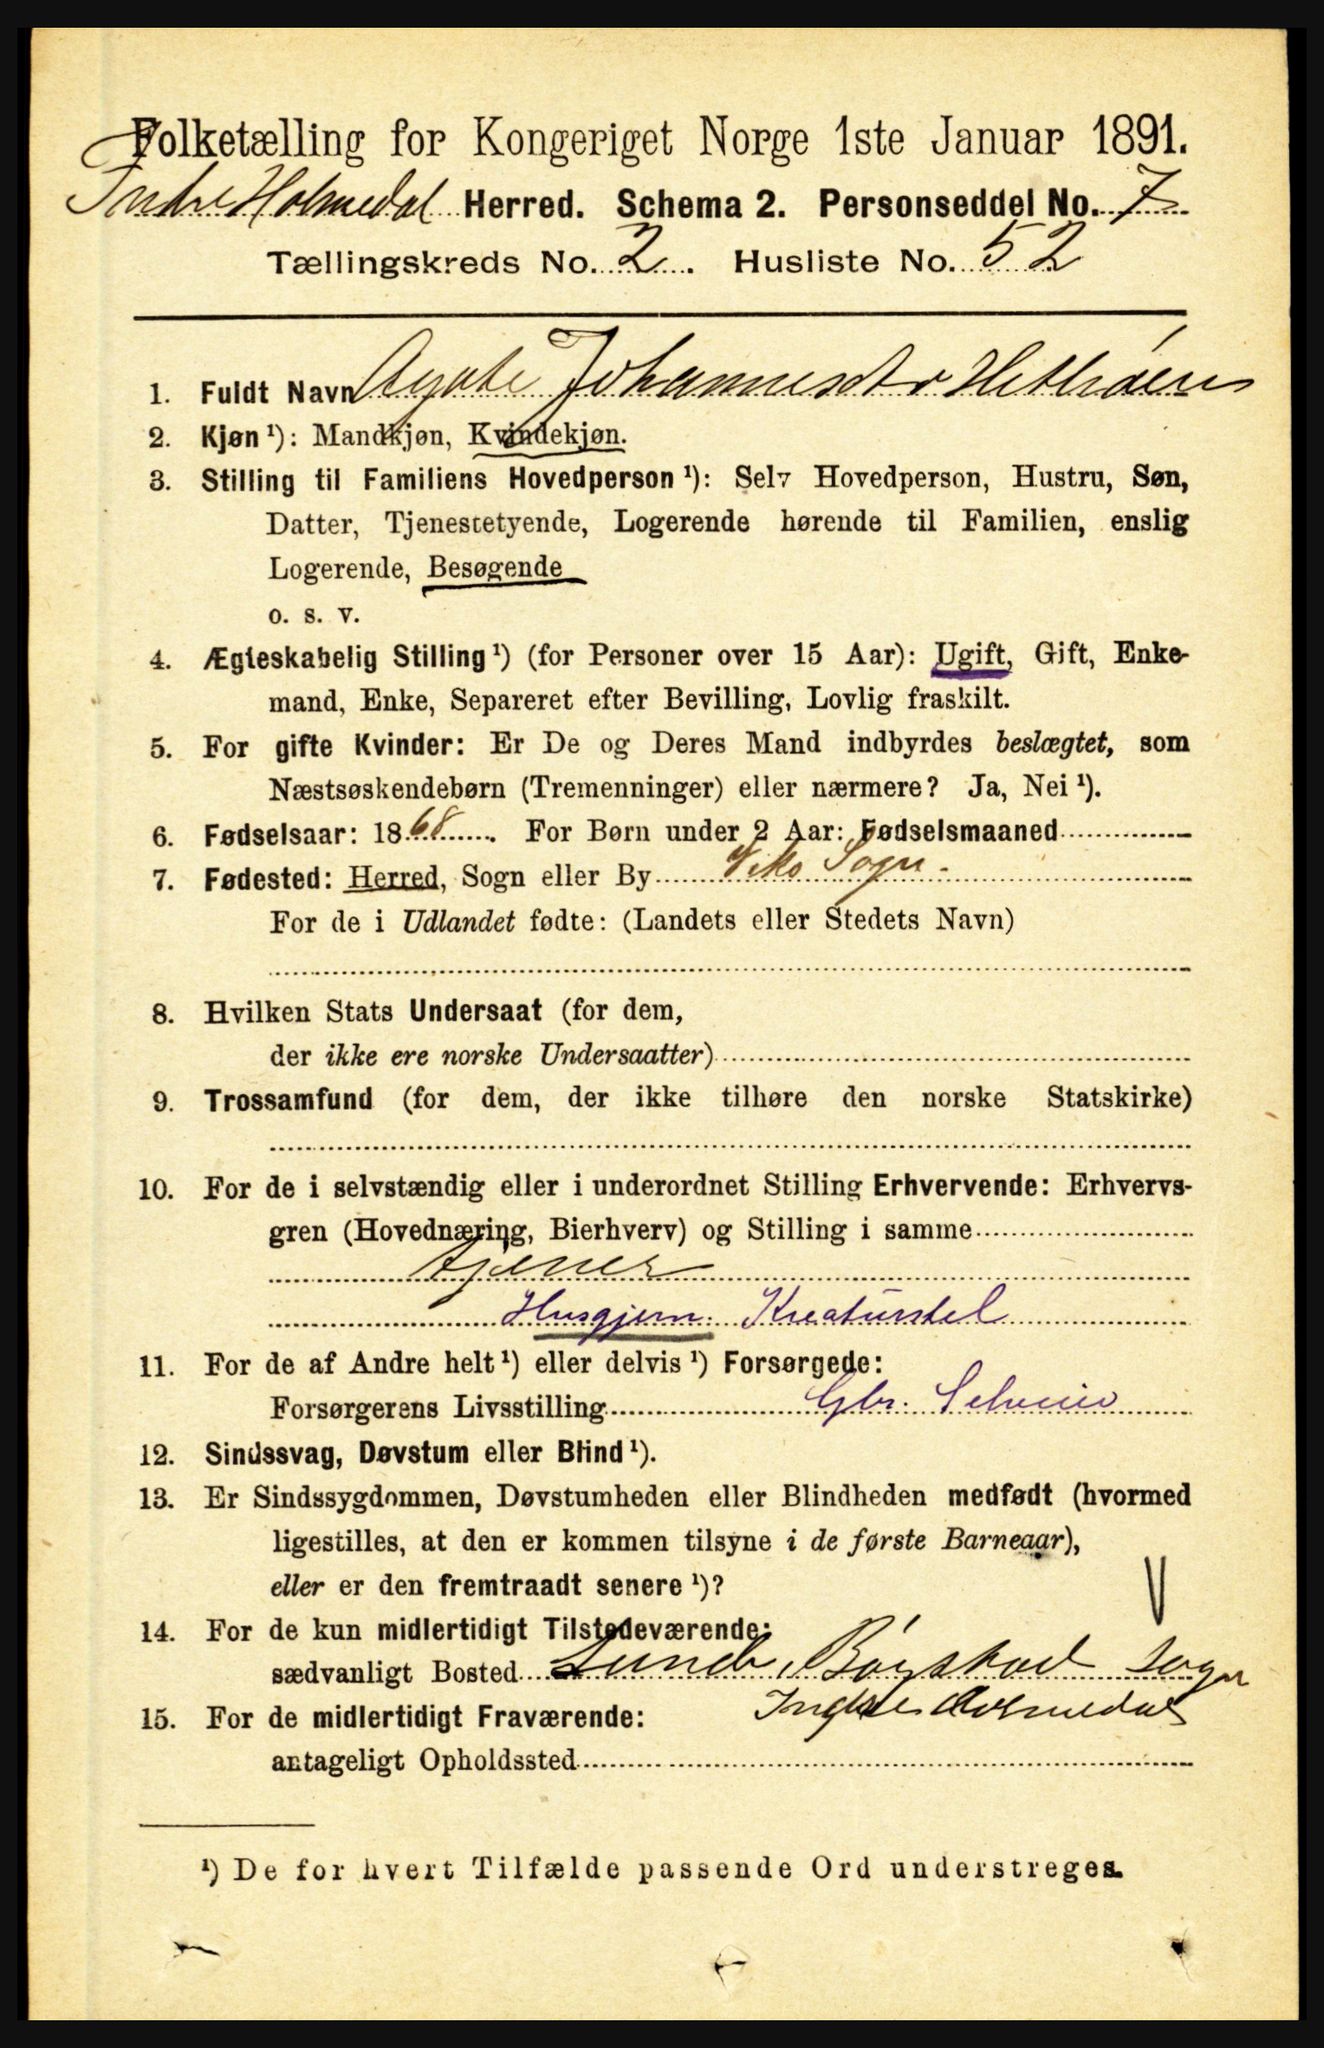 Folketælling for Kongeriget Norge 1ste Januar 1891.
Indre Holmedal Herred. Schema 2. Personseddel No. 7
Tællingskreds No. 2. Husliste No. 52
1. Fuldt Navn Agate Johannesdtr
2. Kjøn ¹): Mandkjøn, Kvindekjøn.
3. Stilling til Familiens Hovedperson ¹): Selv Hovedperson, Hustru, Søn,
Datter, Tjenestetyende, Logerende hørende til Familien, enslig
Logerende, Besøgende
o. s. v.
4. Ægteskabelig Stilling ¹) (for Personer over 15 Aar): Ugift, Gift, Enke-
mand, Enke, Separeret efter Bevilling, Lovlig fraskilt.
5. For gifte Kvinder: Er De og Deres Mand indbyrdes beslægtet, som
Næstsøskendebørn (Tremenninger) eller nærmere? Ja, Nei ¹).
6. Fødselsaar: 1868. For Børn under 2 Aar: Fødselsmaaned
7. Fødested: Herred, Sogn eller By Viks Sogn.
For de i Udlandet fødte: (Landets eller Stedets Navn)
8. Hvilken Stats Undersaat (for dem,
der ikke ere norske Undersaatter)
9. Trossamfund (for dem, der ikke tilhøre den norske Statskirke)
10. For de i selvstændig eller i underordnet Stilling Erhvervende: Erhvervs-
gren (Hovednæring, Bierhverv) og Stilling i samme
tjener
Husgjern. Kreaturstel
11. For de af Andre helt ¹) eller delvis ¹) Forsørgede:
Forsørgerens Livsstilling Gbr. Selveier
12. Sindssvag, Døvstum eller Blind ¹).
13. Er Sindssygdommen, Døvstumheden eller Blindheden medfødt (hvormed
ligestilles, at den er kommen tilsyne i de første Barneaar),
eller er den fremtraadt senere ¹)?
14. For de kun midlertidigt Tilstedeværende:
sædvanligt Bosted Lunde, Bøgstad sogn
Indre Holmedal
15. For de midlertidigt Fraværende:
antageligt Opholdssted
¹) De for hvert Tilfælde passende Ord understreges.